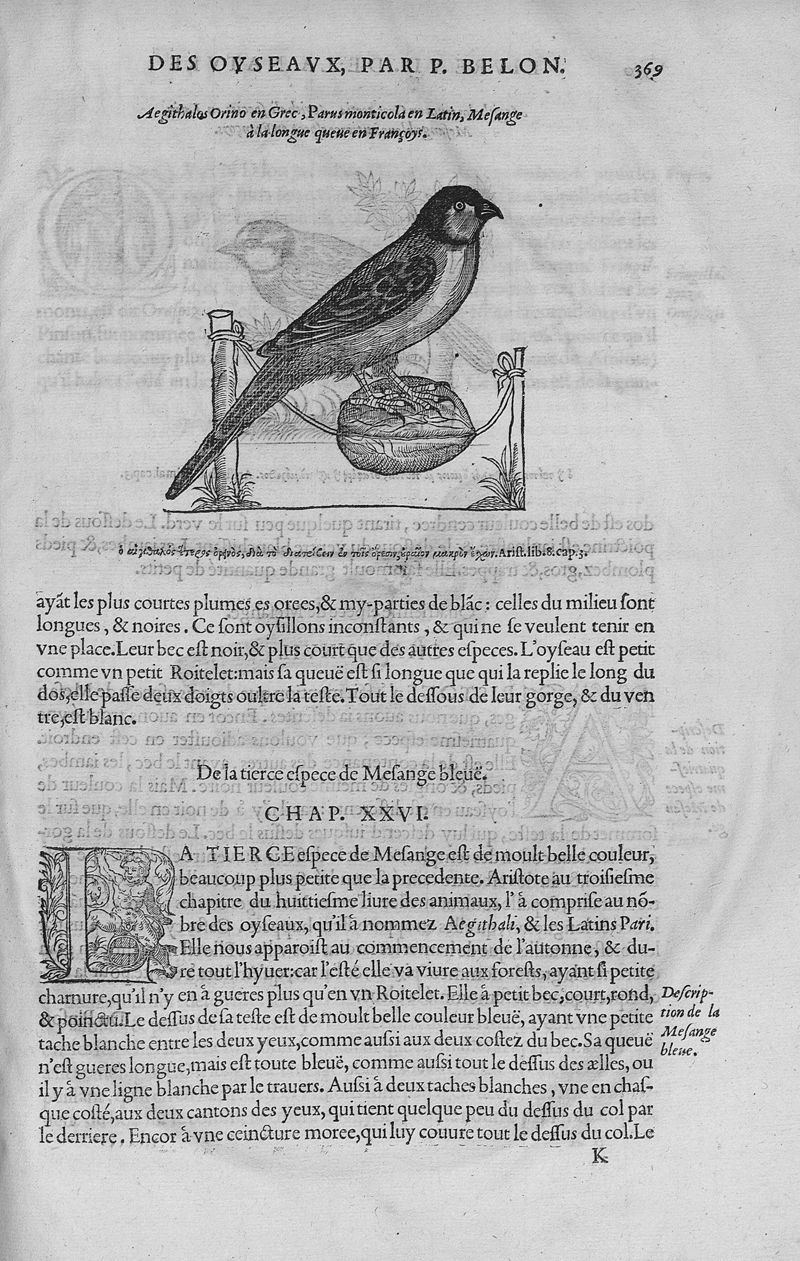 DES OYSEAVX, PAR P. BELON. 369
Aegithalos Orino en Grec, Parus monticola en Latin, Meſange
à la longue queue en Françoys.
ὁ αἰγιθαλὸς ἕτερος ὀρεινὸς, διὰ τὸ διατρίβειν ἐν τοῖς ὄρεσιν, οὐραῖον μακρὸν ἔχων. Ariſt. lib. 8. cap. 3.
ayãt les plus courtes plumes es orees, & my-parties de blãc: celles du milieu ſont
longues, & noires. Ce ſont oyſillons inconſtants, & qui ne ſe veulent tenir en
vne place. Leur bec eſt noir, & plus court que des autres eſpeces. L'oyſeau eſt petit
comme vn petit Roitelet: mais ſa queuë eſt ſi longue que qui la replie le long du
dos, elle paſſe deux doigts oultre la teſte. Tout le deſſous de leur gorge, & du ven
tre, eſt blanc.
De la tierce eſpece de Meſange bleuë.
CHAP. XXVI.
LA TIERCE eſpece de Meſange eſt de moult belle couleur,
beaucoup plus petite que la precedente. Ariſtote au troiſieſme
chapitre du huittieſme liure des animaux, l'à compriſe au nõ-
bre des oyſeaux, qu'il à nommez Aegithali, & les Latins Pari.
Elle nous apparoiſt au commencement de l'autonne, & du-
re tout l'hyuer: car l'eſté elle va viure aux foreſts, ayant ſi petite
charnure, qu'il n'y en à gueres plus qu'en vn Roitelet. Elle à petit bec, court, rond,
& poinctu. Le deſſus de ſa teſte eſt de moult belle couleur bleuë, ayant vne petite
tache blanche entre les deux yeux, comme auſſi aux deux coſtez du bec. Sa queuë
n'eſt gueres longue, mais eſt toute bleuë, comme auſſi tout le deſſus des ælles, ou
il y à vne ligne blanche par le trauers. Auſſi à deux taches blanches, vne en chaſ-
que coſté, aux deux cantons des yeux, qui tient quelque peu du deſſus du col par
le derriere. Encor à vne ceincture moree, qui luy couure tout le deſſus du col. Le
Deſcrip-
tion de la
Meſange
bleue.
K